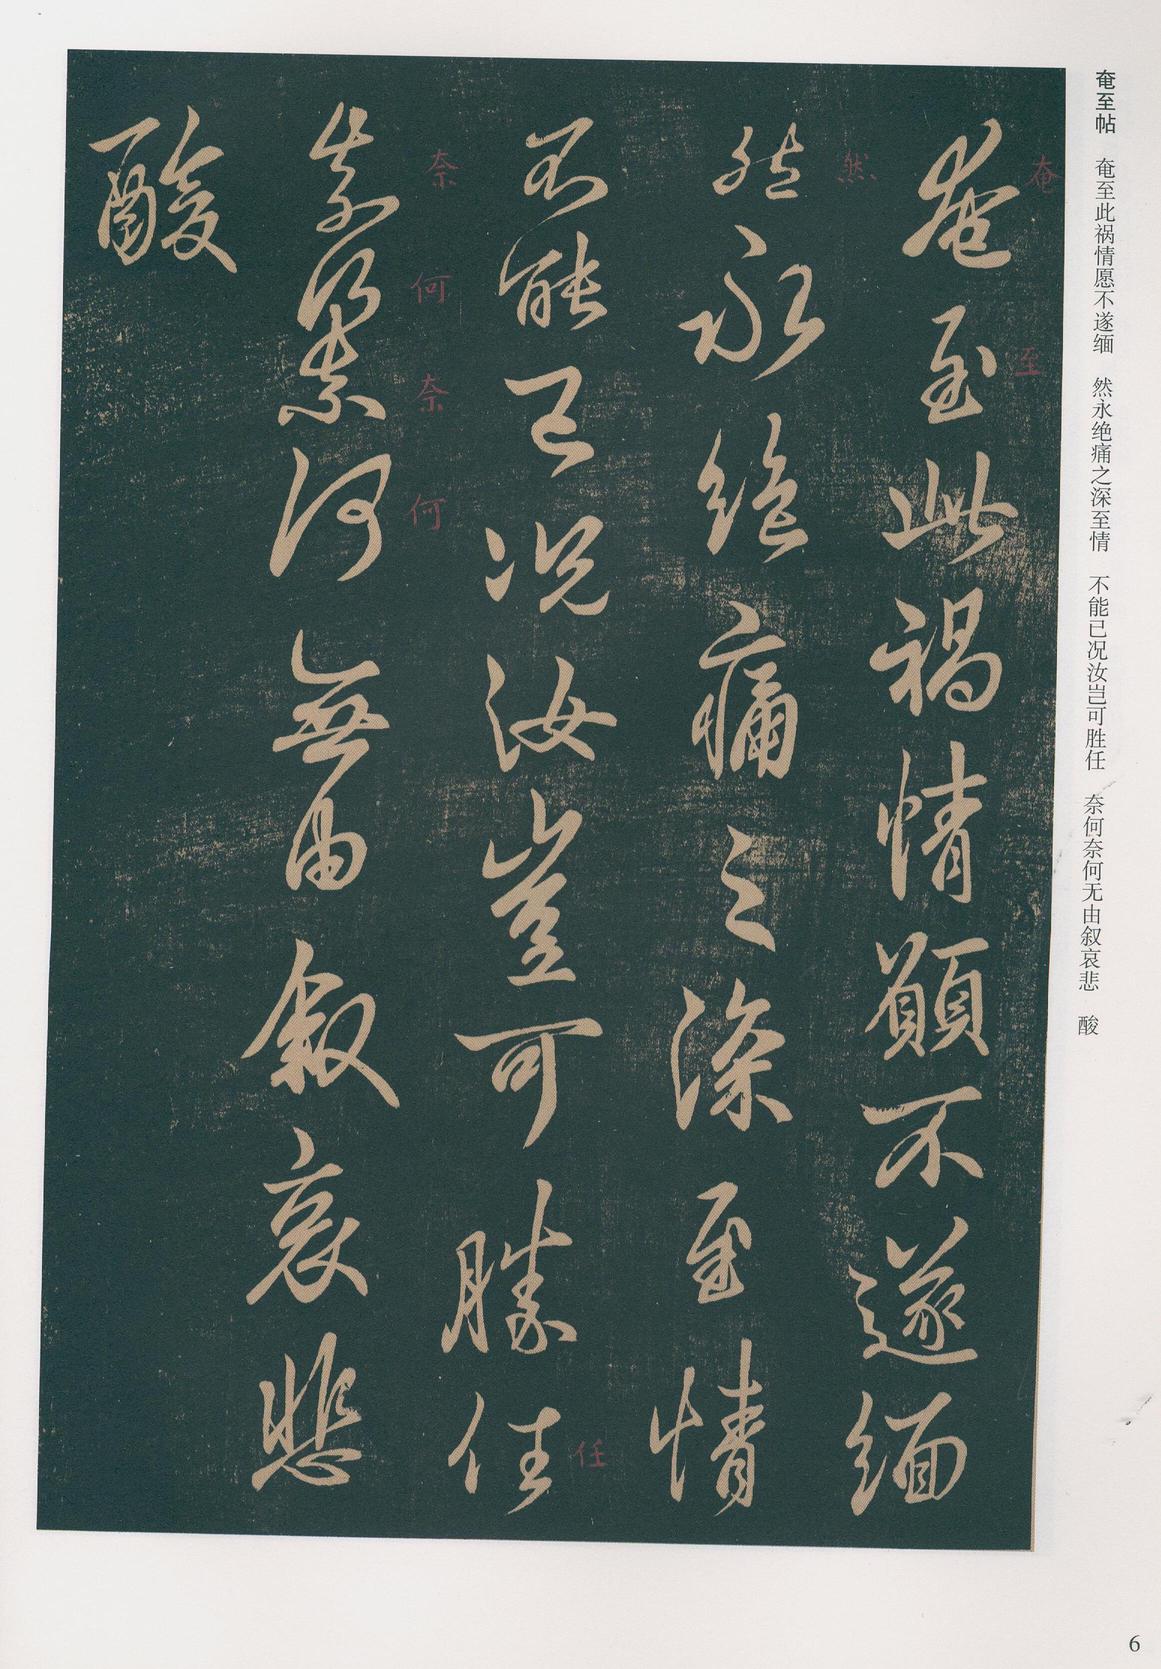 奄至帖 奄至此祸情愿不遂缅 然永绝痛之深至情 不能已况汝岂可胜任 奈何奈何无由叙哀悲 酸
奄至此禍情願不遂緬
奄
至
然永絕痛之深至情
然
不能已況汝豈可勝任
任
奈何奈何無由叙哀悲
奈
何
奈
何
酸
6